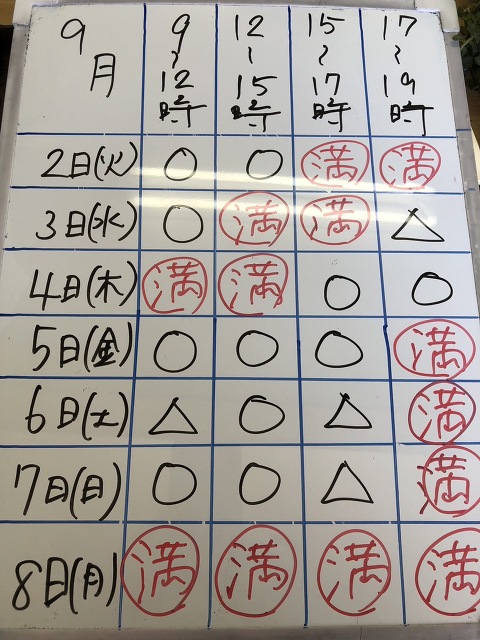 9月 9~12時 12~15時 15~17時 17~19時
2日(火) ○ ○ 満 満
3日(水) ○ 満 満 △
4日(木) 満 満 ○ ○
5日(金) ○ ○ ○ 満
6日(土) △ ○ △ 満
7日(日) ○ ○ △ 満
8日(月) 満 満 満 満